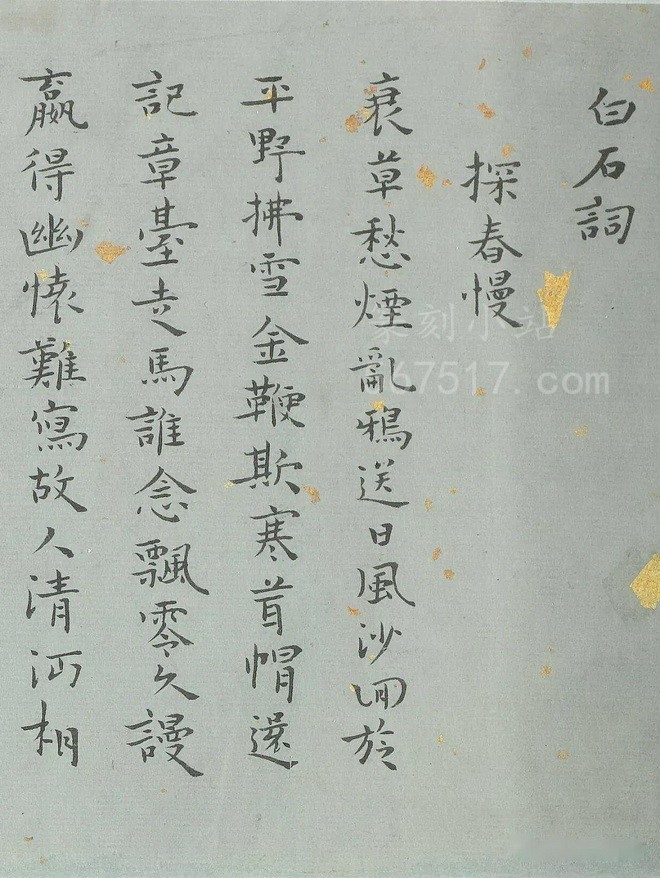 白石詞
探春慢
衰草愁煙亂鴉送日風沙迴於
平野拂雪金鞭欺寒茸帽還
記章臺走馬誰念飄零久謾
嬴得幽懷難寫故人清沔相
篆刻小站
67517.com